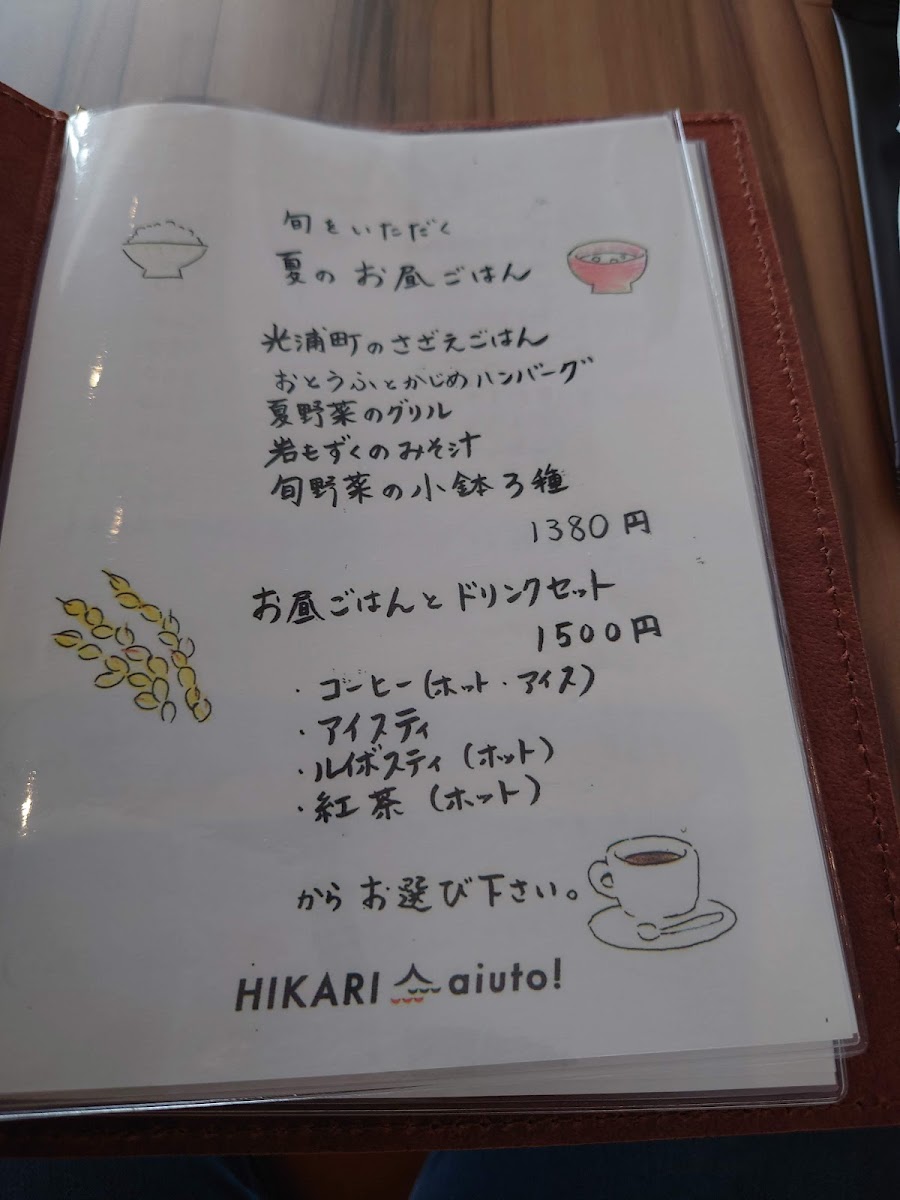 旬をいただく
夏のお昼ごはん
光浦町のさざえごはん
おとうふとかじめハンバーグ
夏野菜のグリル
岩もずくのみそ汁
旬野菜の小鉢3種
1380円
お昼ごはんとドリンクセット
1500円
・コーヒー(ホット・アイス)
・アイスティ
・ルイボスティ(ホット)
・紅茶(ホット)
からお選び下さい。
HIKARI aiuto!